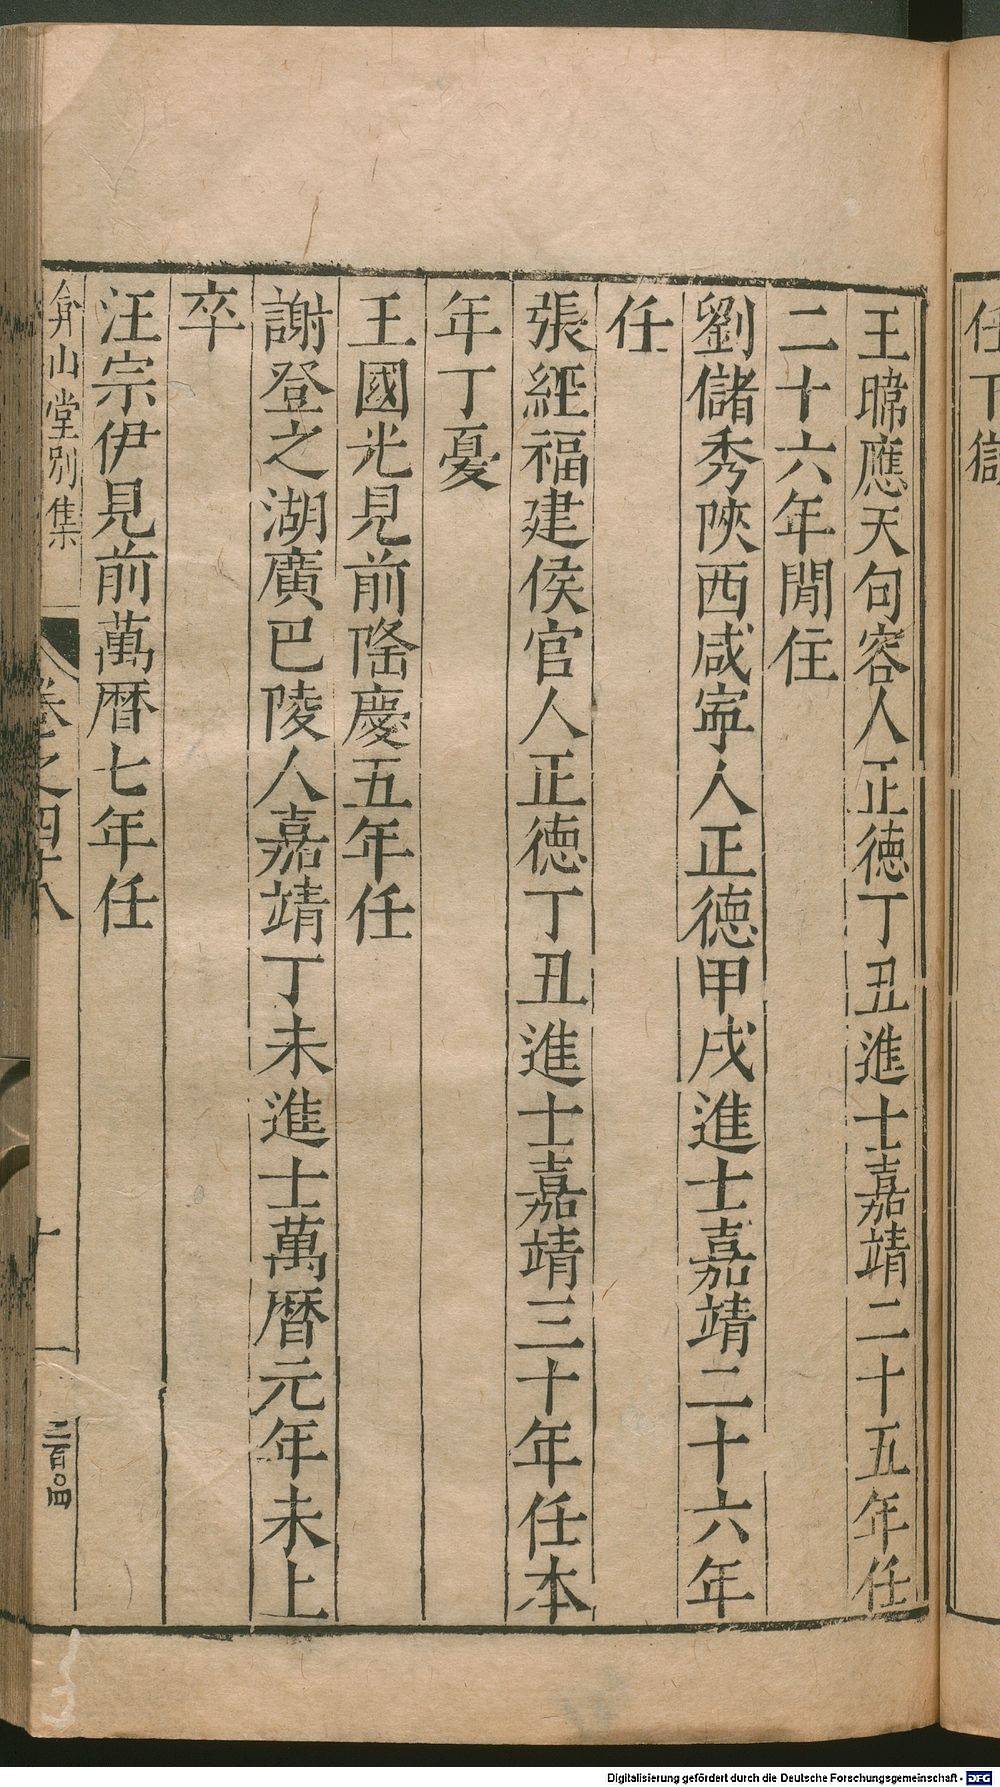 任下獄
王暐應天句容人正徳丁丑進士嘉靖二十五年任
二十六年閒住
劉儲秀陜西咸寧人正徳甲戌進士嘉靖二十六年
任
張經福建侯官人正徳丁丑進士嘉靖三十年任本
年丁憂
王國光見前隆慶五年任
謝登之湖廣巴陵人嘉靖丁未進士萬曆元年未上
卒
汪宗伊見前萬曆七年任
弇山堂別集 卷之四十八 十一 二百〇四
Digitalisierung gefördert durch die Deutsche Forschungsgemeinschaft - DFG